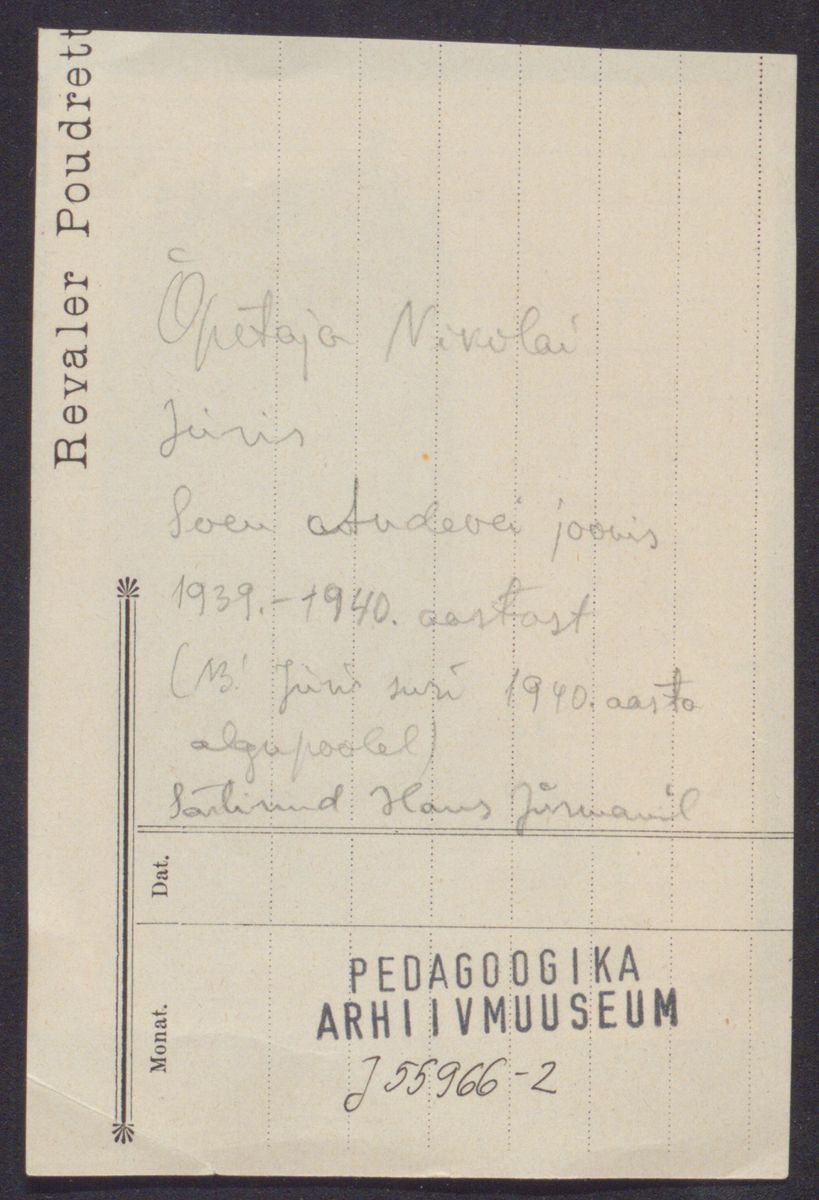 Revaler Poudrett
Õpetaja Nikolai
Jüris
Soen joonis
1939.-1940. aastast
( Jüris suri 1940. aasta
algupoolel)
Hans
Dat.
Monat.
PEDAGOOGIKA
ARHIIVMUUSEUM
J 55966-2